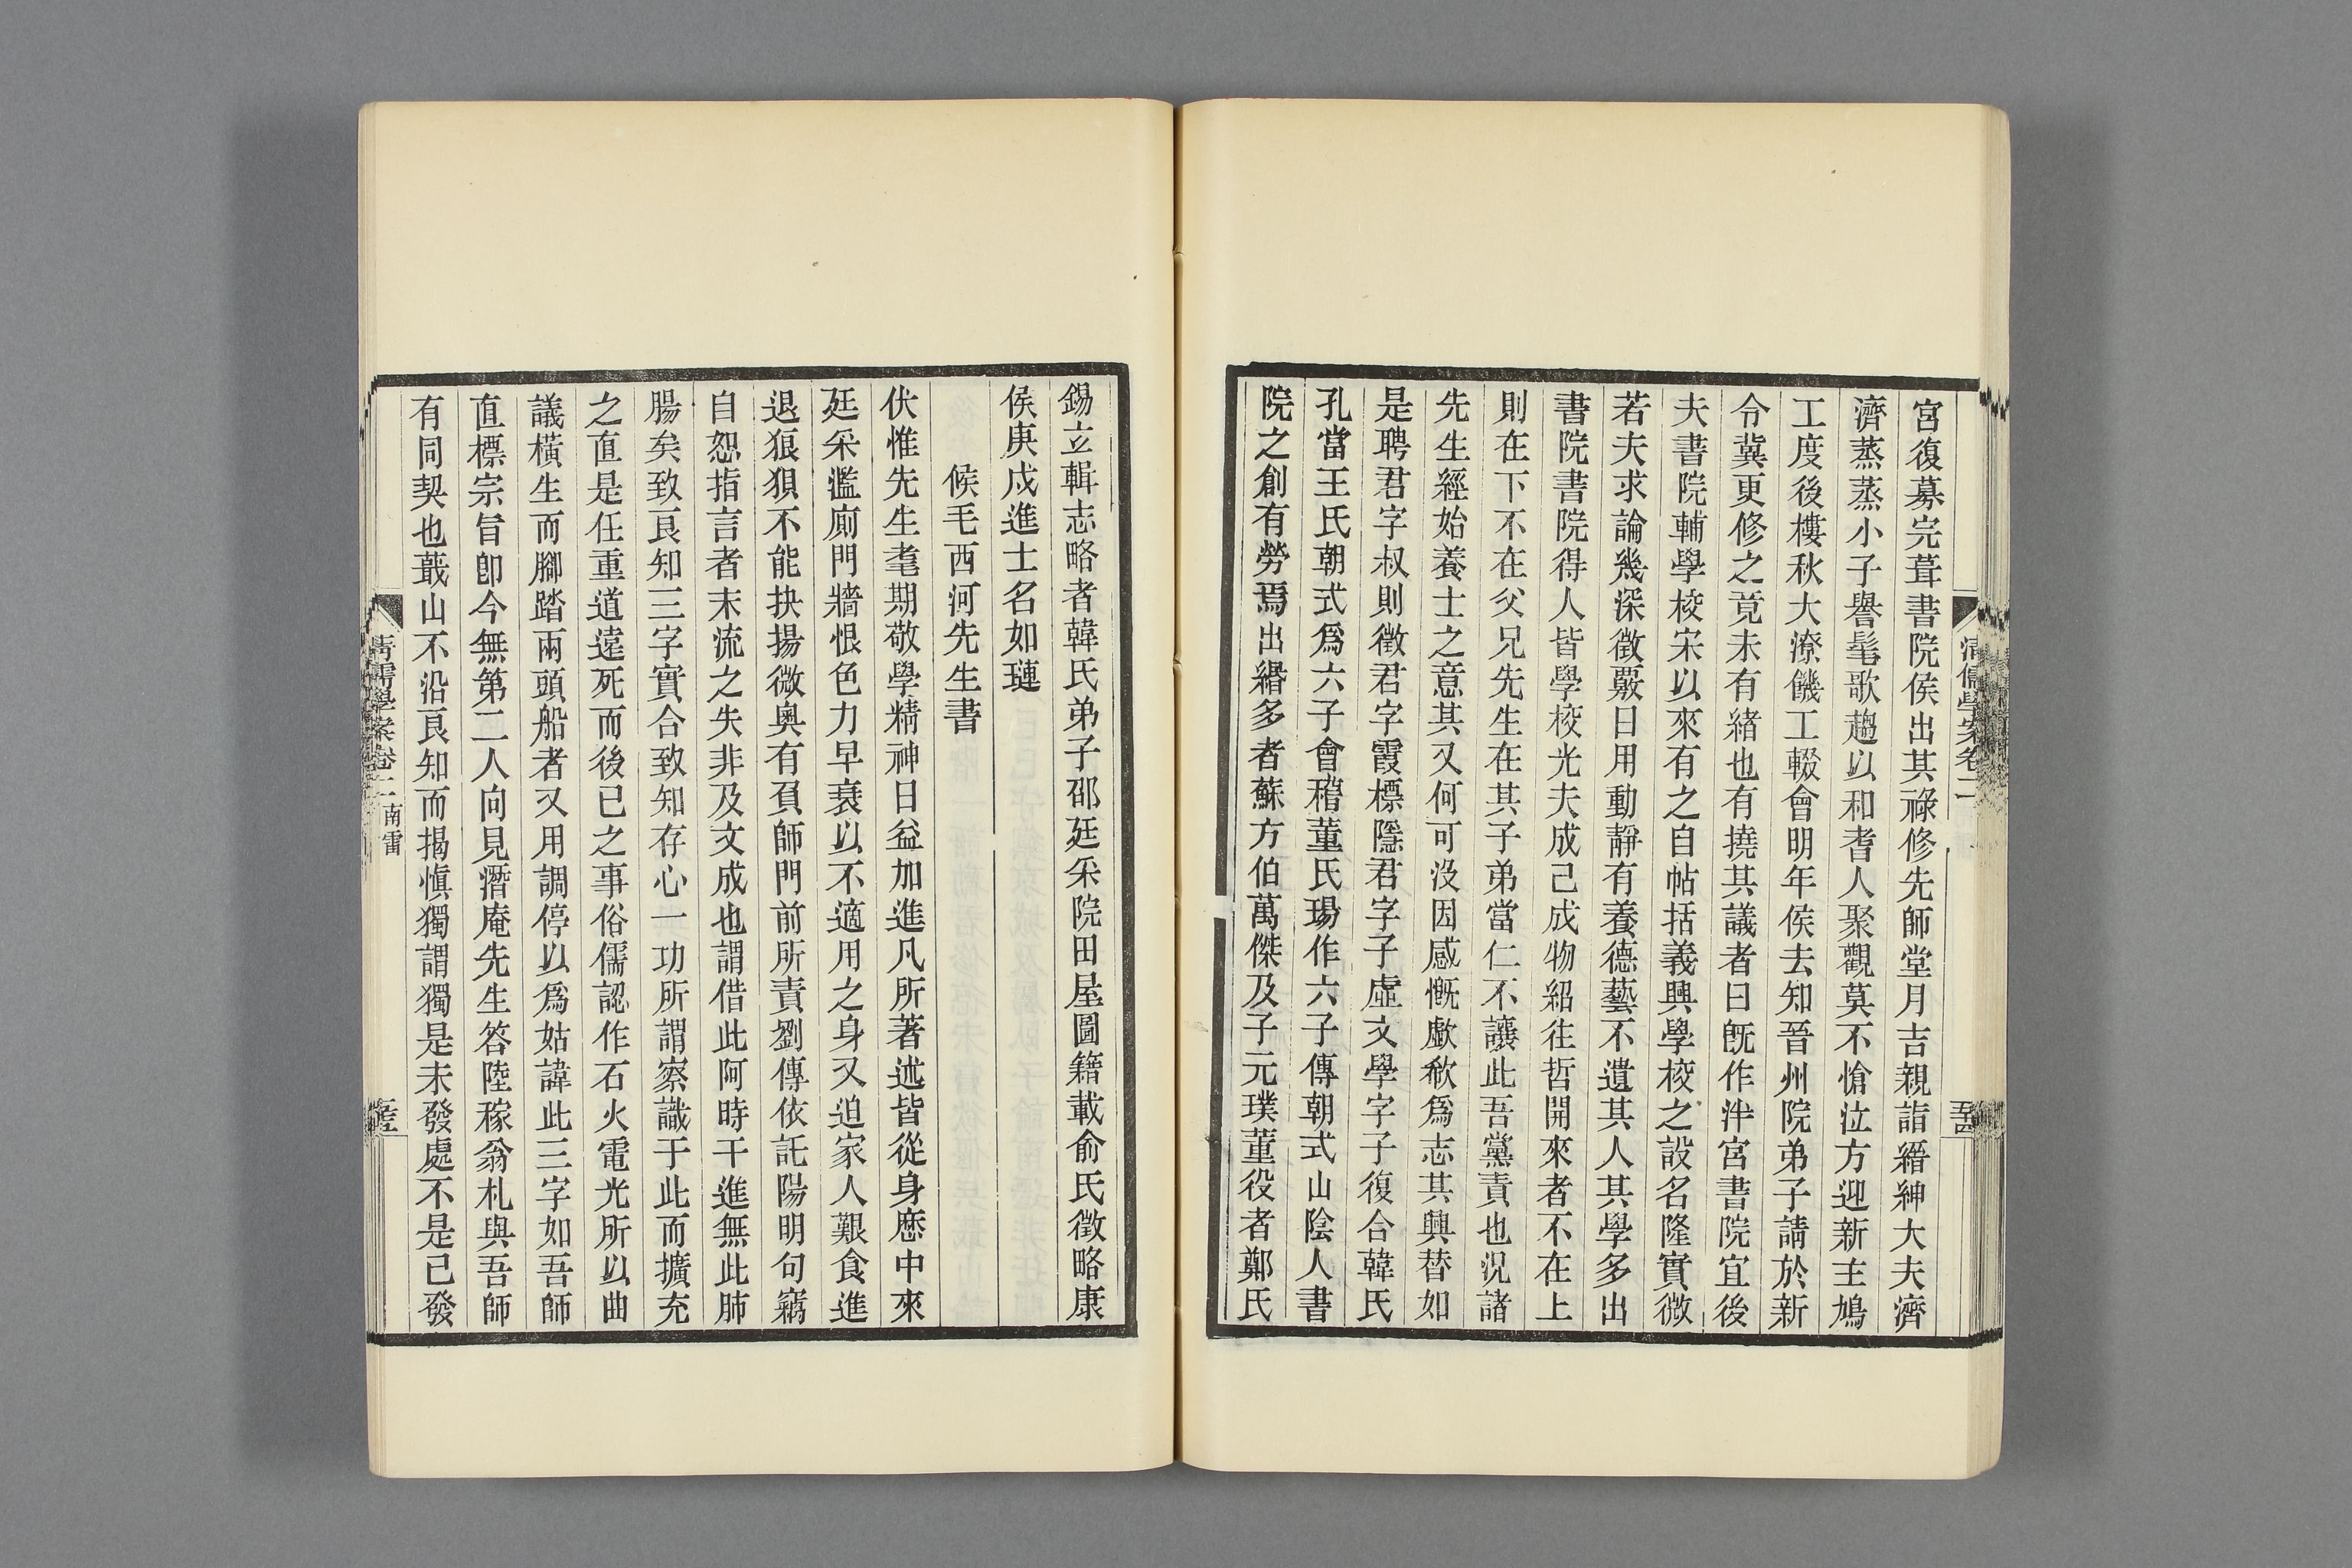 宮復募完葺書院侯出其祿修先師堂月吉親詣縉紳大夫濟
濟蒸蒸小子譽髦歌趨以和耆人聚觀莫不愴泣方迎新主鳩
工度後樓秋大潦饑工輟會明年侯去知晉州院弟子請於新
令冀更修之竟未有緒也有撓其議者曰旣作泮宮書院宜後
夫書院輔學校宋以來有之自帖括義興學校之設名隆實微
若夫求論幾深徵覈日用動靜有養德藝不遺其人其學多出
書院書院得人皆學校光夫成己成物紹往哲開來者不在上
則在下不在父兄先生在其子弟當仁不讓此吾黨責也況諸
先生經始養士之意其又何可沒因感慨歔欷爲志其興替如
是聘君字叔則徵君字霞標隱君字子虛文學字子復合韓氏
孔當王氏朝式爲六子會稽董氏瑒作六子傳朝式山陰人書
院之創有勞焉出緡多者蘇方伯萬傑及子元璞董役者鄭氏
清儒學案卷二
五四
錫立輯志略者韓氏弟子邵廷采院田屋圖籍載俞氏徵略康
侯庚戌進士名如璉
候毛西河先生書
伏惟先生耄期敬學精神日益加進凡所著述皆從身歷中來
廷采濫廁門牆恨色力早衰以不適用之身又迫家人艱食進
退狼狽不能抉揚微奧有頁師門前所責劉傳依託陽明句竊
自恕指言者末流之失非及文成也謂借此阿時干進無此肺
腸矣致良知三字實合致知存心一功所謂察識于此而擴充
之直是任重道遠死而後已之事俗儒認作石火電光所以曲
議橫生而腳踏兩頭船者又用調停以爲姑諱此三字如吾師
直標宗旨卽今無第二人向見潛庵先生答陸稼翁札與吾師
有同契也蕺山不沿良知而揭愼獨謂獨是未發處不是已發
清儒學案卷二 南雷